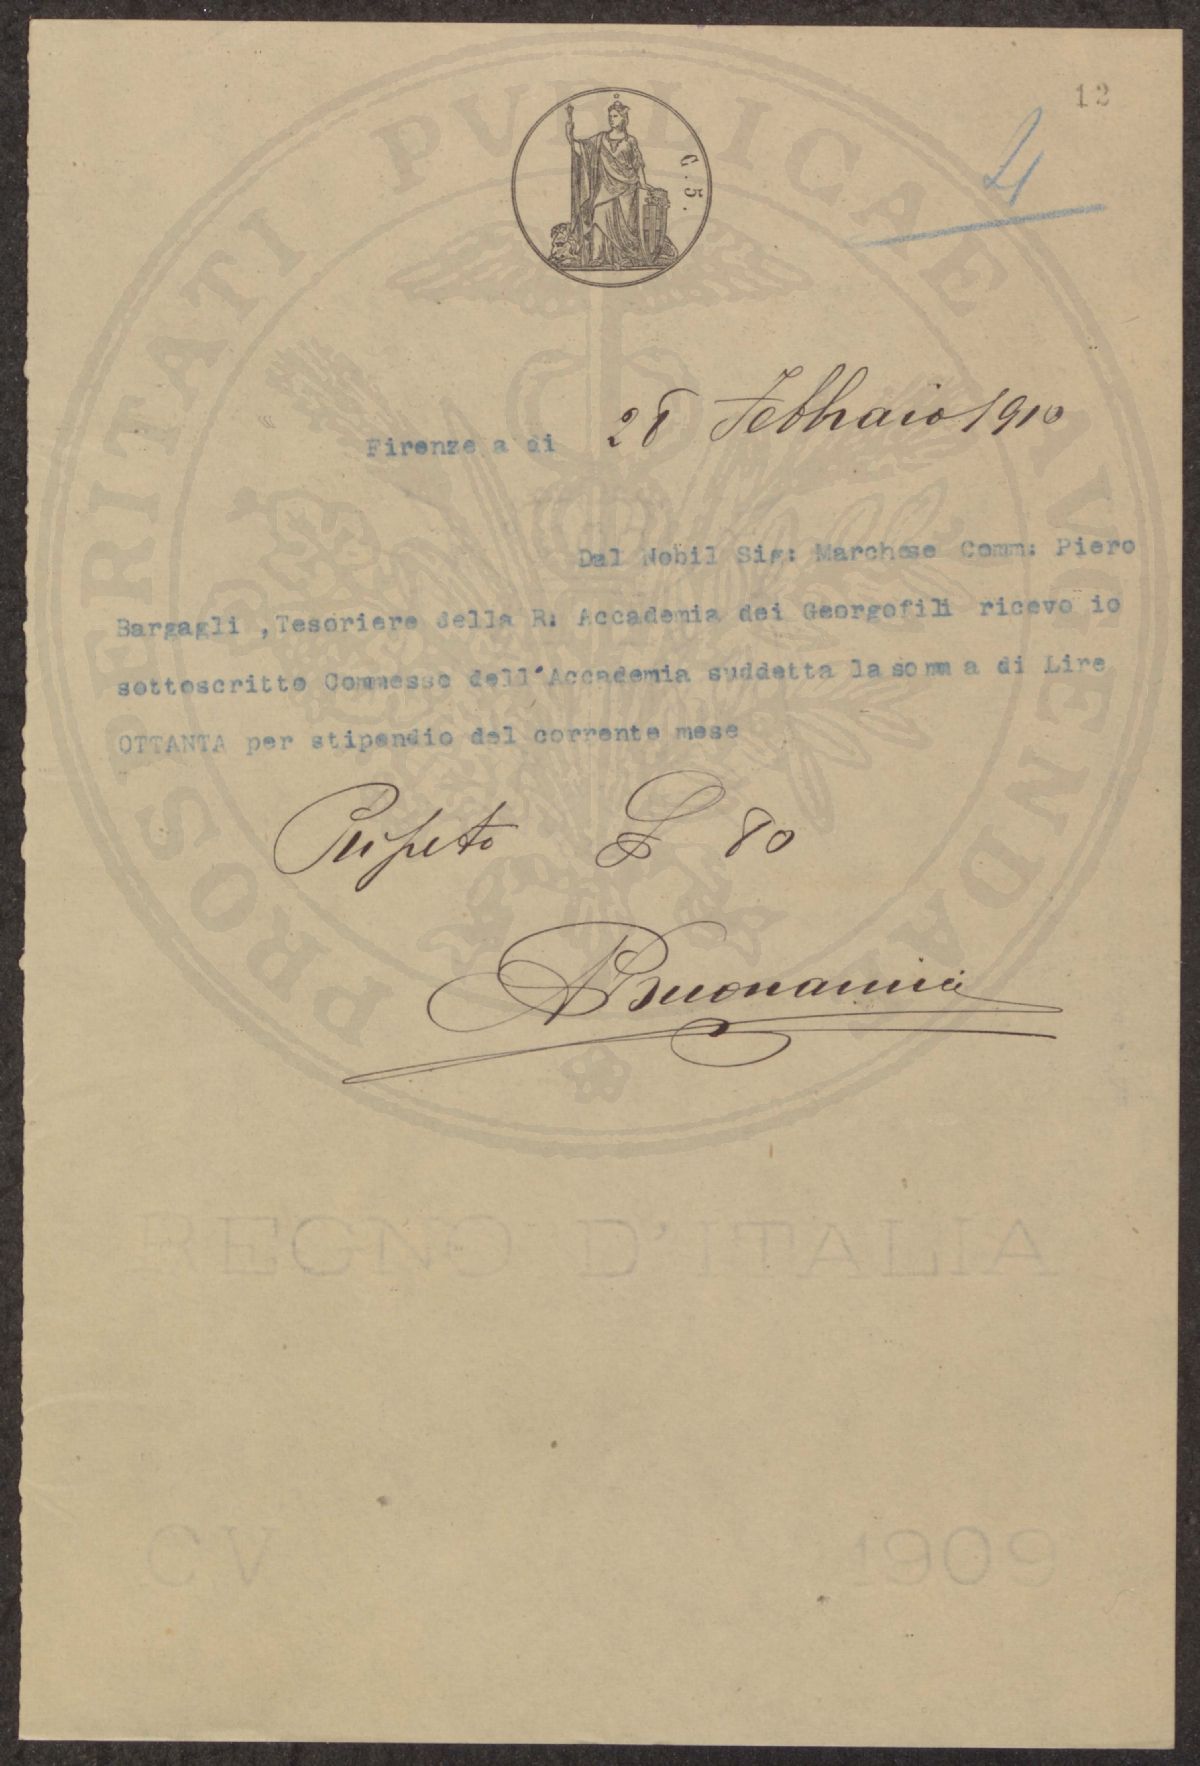 12
4
C. 5.
PROSPERITATI PVBLICAE AVGENDAE
Firenze a di 28 Febbraio 1910
Dal Nobil Sig: Marchese Comm: Piero
Bargagli ,Tesoriere della R: Accademia dei Georgofili ricevo io
sottoscritto Commesso dell'Accademia suddetta la somma di Lire
OTTANTA per stipendio del corrente mese
Ripeto L 80
ABuonamici
REGNO D'ITALIA
CV 1909